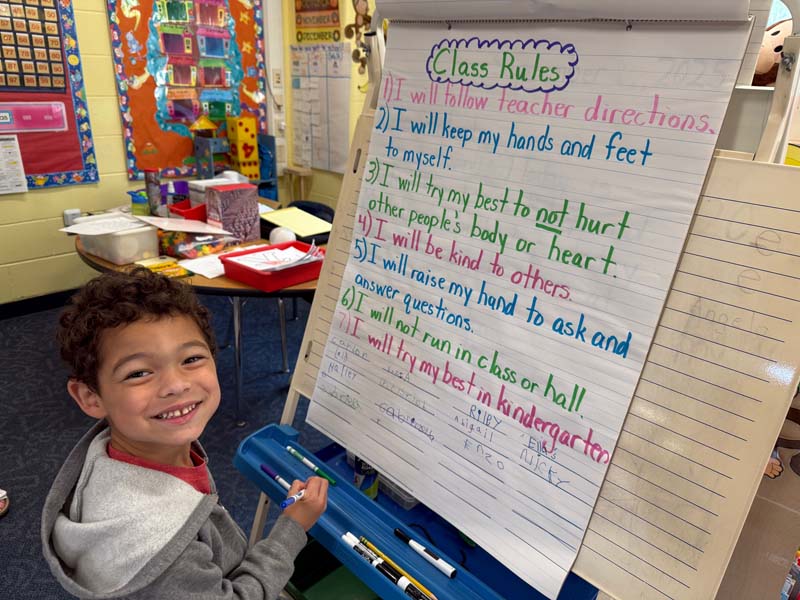 NOVEMBER
DECEMBER
Class Rules
1) I will follow teacher directions.
2) I will keep my hands and feet
to myself.
3) I will try my best to not hurt
other people's body or heart.
4) I will be kind to others.
5) I will raise my hand to ask and
answer questions.
6) I will not run in class or hall.
7) I will try my best in kindergarten
RILEY
Abigail
ENZO
NICKY
Angelo